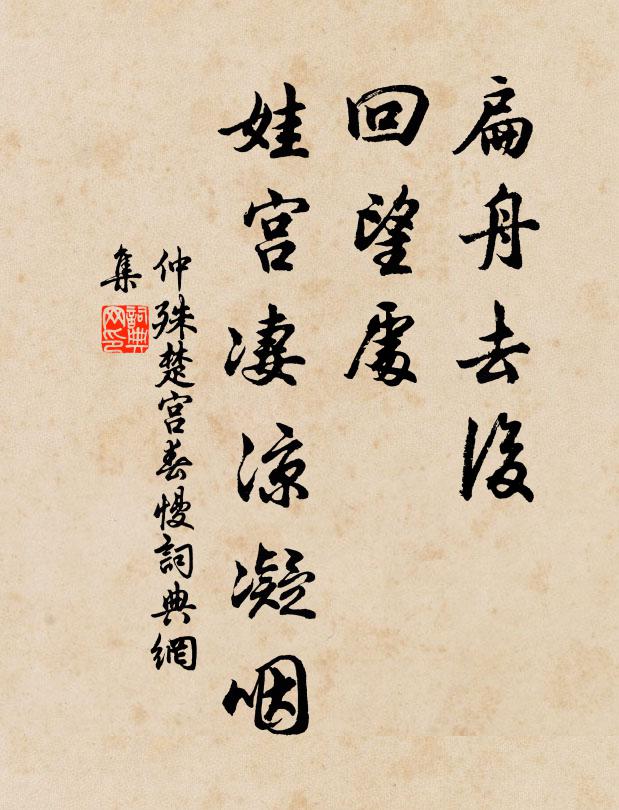 扁舟去後
回望處
娃宫凄凉凝咽
仲殊楚宫春慢詞典網
集
詞典
网印